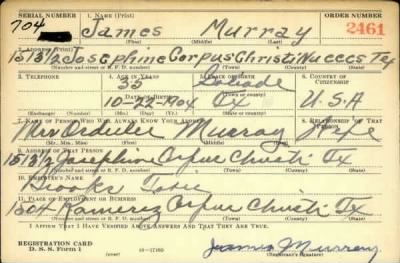 SERIAL NUMBER 1. NAME (Print) ORDER NUMBER
704 James Murray 2461
(First) (Middle) (Last)
2. ADDRESS (Print)
1513 1/2 Josephine Corpus Christi Nueces Tx
(Number and street or R. F. D. number) (Town) (County) (State)
3. TELEPHONE 4. AGE IN YEARS 5. PLACE OF BIRTH 6. COUNTRY OF CITIZENSHIP
35 Goliade
DATE OF BIRTH (Town or county)
10-22-1904 Tx U.S.A
(Exchange) (Number) (Mo.) (Day) (Yr.) (State or country)
7. NAME OF PERSON WHO WILL ALWAYS KNOW YOUR ADDRESS 8. RELATIONSHIP OF THAT PERSON
Mrs Murray Wife
(Mr., Mrs., Miss) (First) (Middle) (Last)
9. ADDRESS OF THAT PERSON
1513 1/2 Josephine Corpus Christi Tx
(Number and street or R. F. D. number) (Town) (County) (State)
10. EMPLOYER'S NAME
Brooks
11. PLACE OF EMPLOYMENT OR BUSINESS
1504 Ramirez Corpus Christi Tx
(Number and street or R. F. D. number) (Town) (County) (State)
I AFFIRM THAT I HAVE VERIFIED ABOVE ANSWERS AND THAT THEY ARE TRUE.
REGISTRATION CARD
D. S. S. Form 1 (over) 16-17105 James Murray
(Registrant's signature)